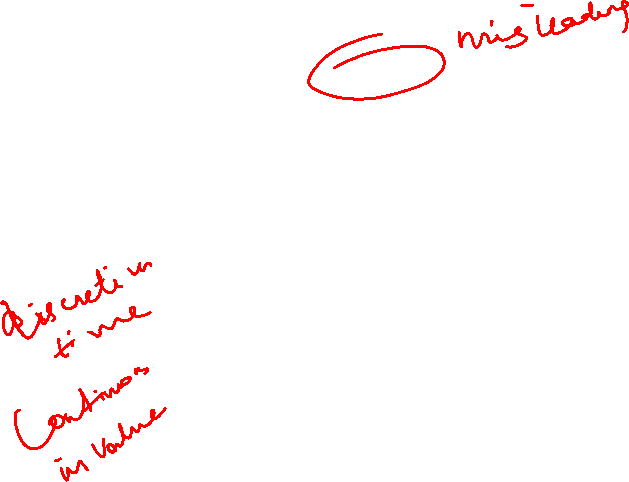 misleading
discrete in
time
Continuos
in value